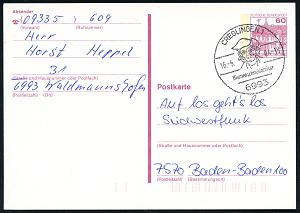 Absender
09335 / 609
(Vorwahl) (Rufnummer)
Herr
Horst Heppel
31
(Straße und Hausnummer oder Postfach)
6993 Waldmannshofen
(Postleitzahl) (Ort)
CREGLINGEN 1
6993
DEUTSCHE BUNDESPOST
60
Postkarte
Auf los geht's los
Südwestfunk
(Straße und Hausnummer oder Postfach)
7570 Baden-Baden 100
(Postleitzahl) (Bestimmungsort)